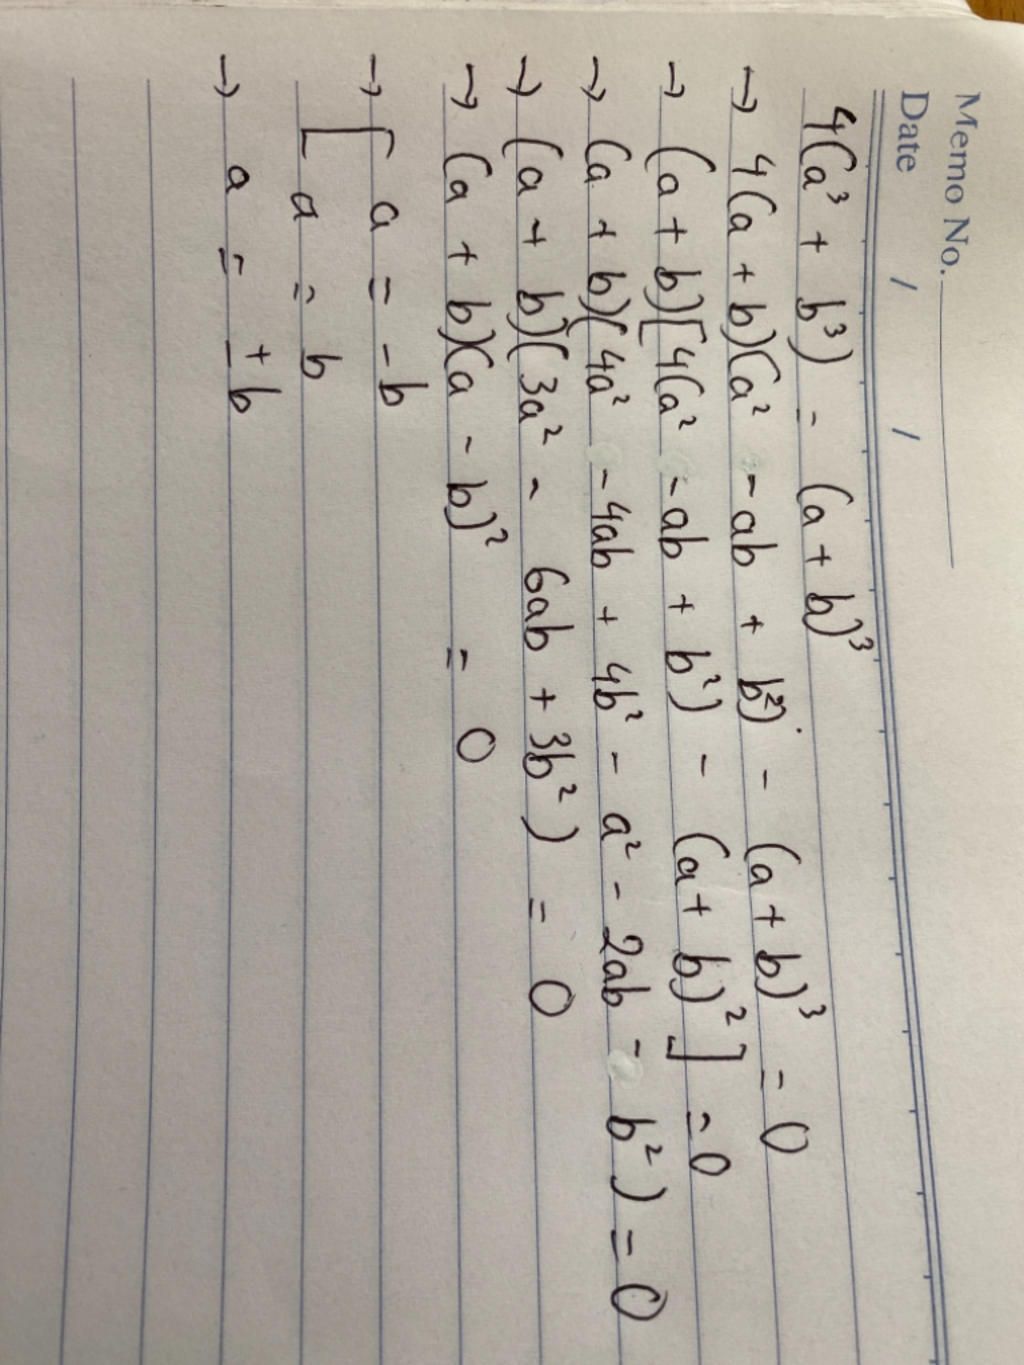 Memo No.
Date / /
4(a³ + b³) - (a + b)³
→ 4(a + b)(a² - ab + b²) - (a + b)³ = 0
→ (a + b)[4(a² - ab + b²) - (a + b)²] = 0
→ (a + b)(4a² - 4ab + 4b² - a² - 2ab - b²) = 0
→ (a + b)(3a² - 6ab + 3b²) = 0
→ (a + b)(a - b)² = 0
→ [ a = -b
a = b
→ a = ±b